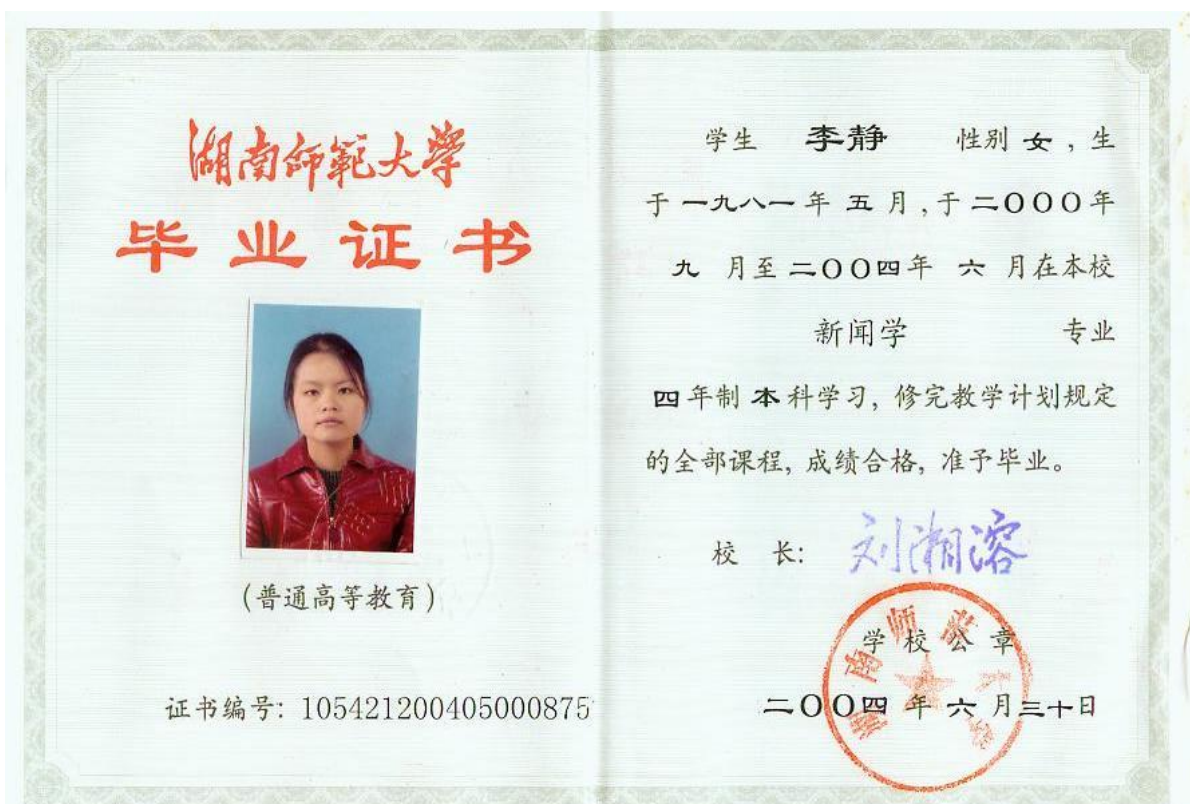 湖南师范大学
毕业证书
(普通高等教育)
证书编号: 105421200405000875
学生 李静 性别 女 , 生
于 一九八一 年 五 月 , 于 二OOO年
九 月至 二OO四年 六 月在本校
新闻学 专业
四 年制 本 科学习, 修完教学计划规定
的全部课程, 成绩合格, 准予毕业。
校 长: 刘湘溶
学校公章
湖南师范大学
二OO四 年 六 月三十日